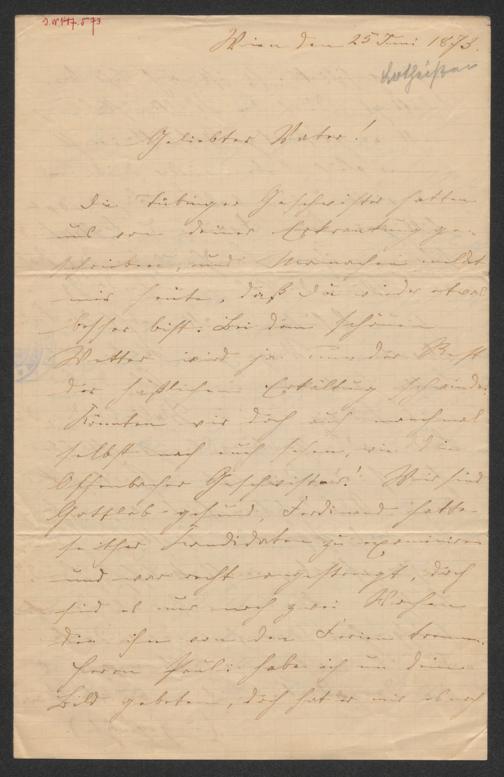 Wien den 25 Juni 1873.
Lotheißen
Geliebter Vater!
Die Tübinger Geschwister hatten
uns von deiner Erkrankung ge-
schrieben, und Mamachen meldet
mir heute, daß du wieder etwas
besser bist. Bei dem schönen
Wetter wird ja nun der Rest
der häßlichen Erkältung schwinden.
Könnten wir doch auch manchmal
selbst nach euch sehen, wie die
Offenbacher Geschwister! Wir sind
Gottlob gesund, Ferdinand hatte
seither Kandidaten zu examiniren
und war recht angestrengt, doch
sind es nur noch zwei Wochen
die ihn von den Ferien trennen.
Herrn Pauli habe ich um dein
Bild gebeten, doch hat er mir